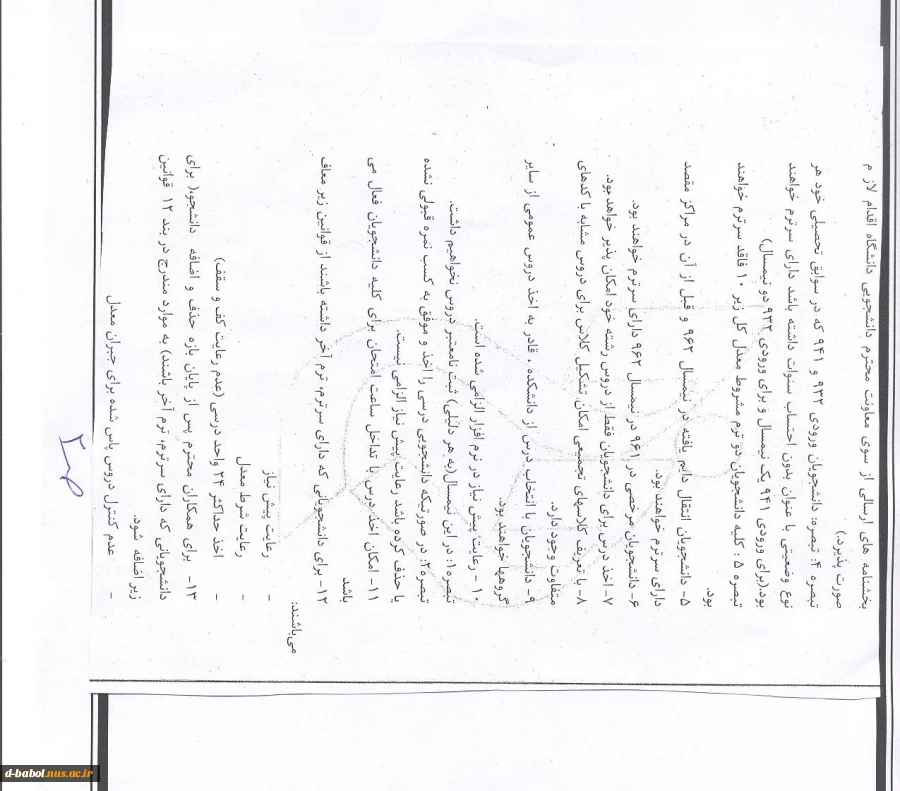 بخشنامه های ارسالی از سوی معاونت محترم دانشجویی دانشگاه اقدام لاز م
صورت پذیرد.)
تبصره ۴: تبصره: دانشجویان ورودی ۹۳۲ و ۹۴۱ که در سوابق تحصیلی خود هر
نوع وضعیتی با عنوان بدون احتساب سنوات داشته باشد دارای سرترم خواهند
بود.(برای ورودی ۹۴۱ یک نیمسال و برای ورودی ۹۳۲ دو نیمسال)
تبصره ۵ : کلیه دانشجویان دو ترم مشروط معدل کل زیر ۱۰ فاقد سرترم خواهند
بود.
۵- دانشجویان انتقال دایم یافته در نیمسال ۹۶۲ و قبل از آن در مراکز مقصد
دارای سرترم خواهند بود.
۶- دانشجویان مرخصی در ۹۶۱ در نیمسال ۹۶۲ دارای سرترم خواهند بود.
۷- اخذ درس برای دانشجویان فقط از دروس رشته خود امکان پذیر خواهد بود.
۸- با تعریف کلاسهای تجمیعی امکان تشکیل کلاس برای دروس مشابه با کدهای
متفاوت وجود دارد.
۹- دانشجویان با انتخاب درس از دانشکده ، قادر به اخذ دروس عمومی از سایر
گروهها خواهند بود.
۱۰ - رعایت پیش نیاز در نرم افزار الزامی شده است.
تبصره۱: در این نیمسال(به هر دلیلی) ثبت نامعتبر دروس نخواهیم داشت.
تبصره۲: در صورتیکه دانشجویی درسی را اخذ و موفق به کسب نمره قبولی نشده
یا حذف کرده باشد رعایت پیش نیاز الزامی نیست.
۱۱- امکان اخذ درس با تداخل ساعت امتحان برای کلیه دانشجویان فعال می
باشد
۱۲- برای دانشجویانی که دارای سرترم، ترم آخر داشته باشند از قوانین زیر معاف
می‌باشند.
- رعایت پیش نیاز
- رعایت شرط معدل
- اخذ حداکثر ۲۴ واحد درسی (عدم رعایت کف و سقف)
۱۳- برای همکاران محترم پس از پایان بازه حذف و اضافه دانشجو،( برای
دانشجویانی که دارای سرترم، ترم آخر باشند) به موارد مندرج در بند ۱۲ قوانین
زیر اضافه شود.
- عدم کنترل دروس پاس شده برای جبران معدل
d-babol.nus.ac.ir